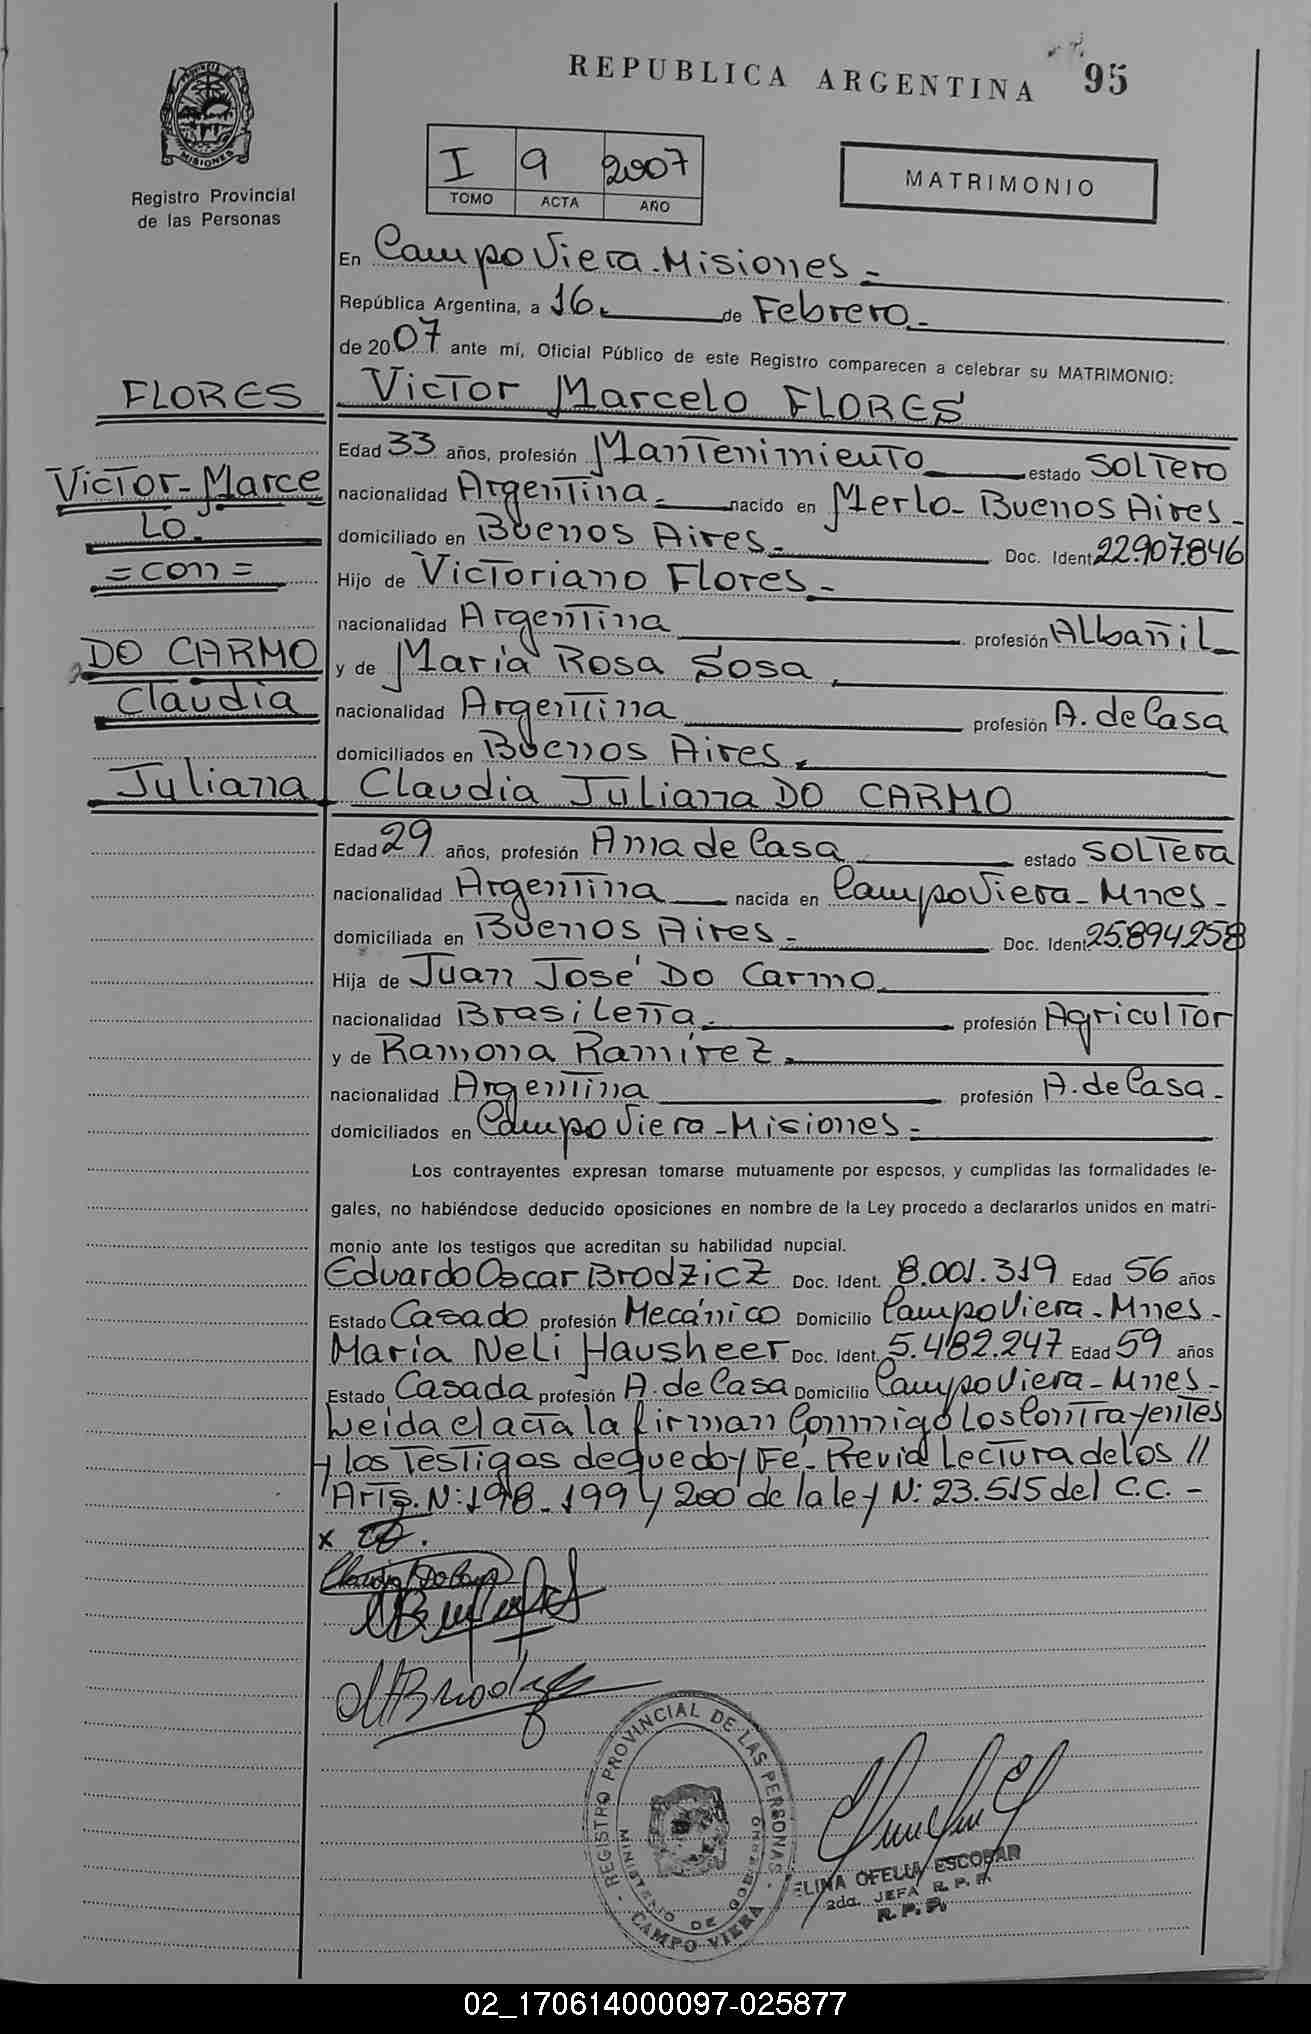 REPUBLICA ARGENTINA 95
PROVINCIA DE MISIONES
Registro Provincial
de las Personas
I 9 2007
TOMO ACTA AÑO
MATRIMONIO
En Campo Viera - Misiones -
República Argentina, a 16 de Febrero -
de 2007 ante mí, Oficial Público de este Registro comparecen a celebrar su MATRIMONIO:
FLORES
Victor - Marce
Lo.
= con =
DO CARMO
Claudia
Juliana
Victor Marcelo FLORES
Edad 33 años, profesión Mantenimiento estado Soltero
nacionalidad Argentina - nacido en Merlo - Buenos Aires -
domiciliado en Buenos Aires - Doc. Ident 22.907.846
Hijo de Victoriano Flores -
nacionalidad Argentina profesión Albañil
y de María Rosa Sosa
nacionalidad Argentina profesión A. de Casa
domiciliados en Buenos Aires.
Claudia Juliana DO CARMO
Edad 29 años, profesión Ama de Casa estado Soltera
nacionalidad Argentina nacida en Campo Viera - Mnes -
domiciliada en Buenos Aires - Doc. Ident 25.894.258
Hija de Juan José Do Carmo
nacionalidad Brasileña - profesión Agricultor
y de Ramona Ramírez.
nacionalidad Argentina profesión A. de Casa -
domiciliados en Campo Viera - Misiones -
Los contrayentes expresan tomarse mutuamente por esposos, y cumplidas las formalidades le-
gales, no habiéndose deducido oposiciones en nombre de la Ley procedo a declararlos unidos en matri-
monio ante los testigos que acreditan su habilidad nupcial.
Eduardo Oscar Brodzicz Doc. Ident. 8.001.319 Edad 56 años
Estado Casado profesión Mecánico Domicilio Campo Viera - Mnes -
María Neli Hausheer Doc. Ident. 5.482.247 Edad 59 años
Estado Casada profesión A. de Casa Domicilio Campo Viera - Mnes -
Leída el acta la firman Conmigo Los Contrayentes
y los Testigos de que doy Fé - Previa Lectura de los //
Arts. N: 198 - 199 y 200 de la ley N: 23.515 del C.C. -
x
REGISTRO PROVINCIAL DE LAS PERSONAS
MINISTERIO DE GOBIERNO
CAMPO VIERA
ELINA OFELIA ESCOBAR
2da. JEFA R. P. P.
R. P. P.
02_170614000097-025877